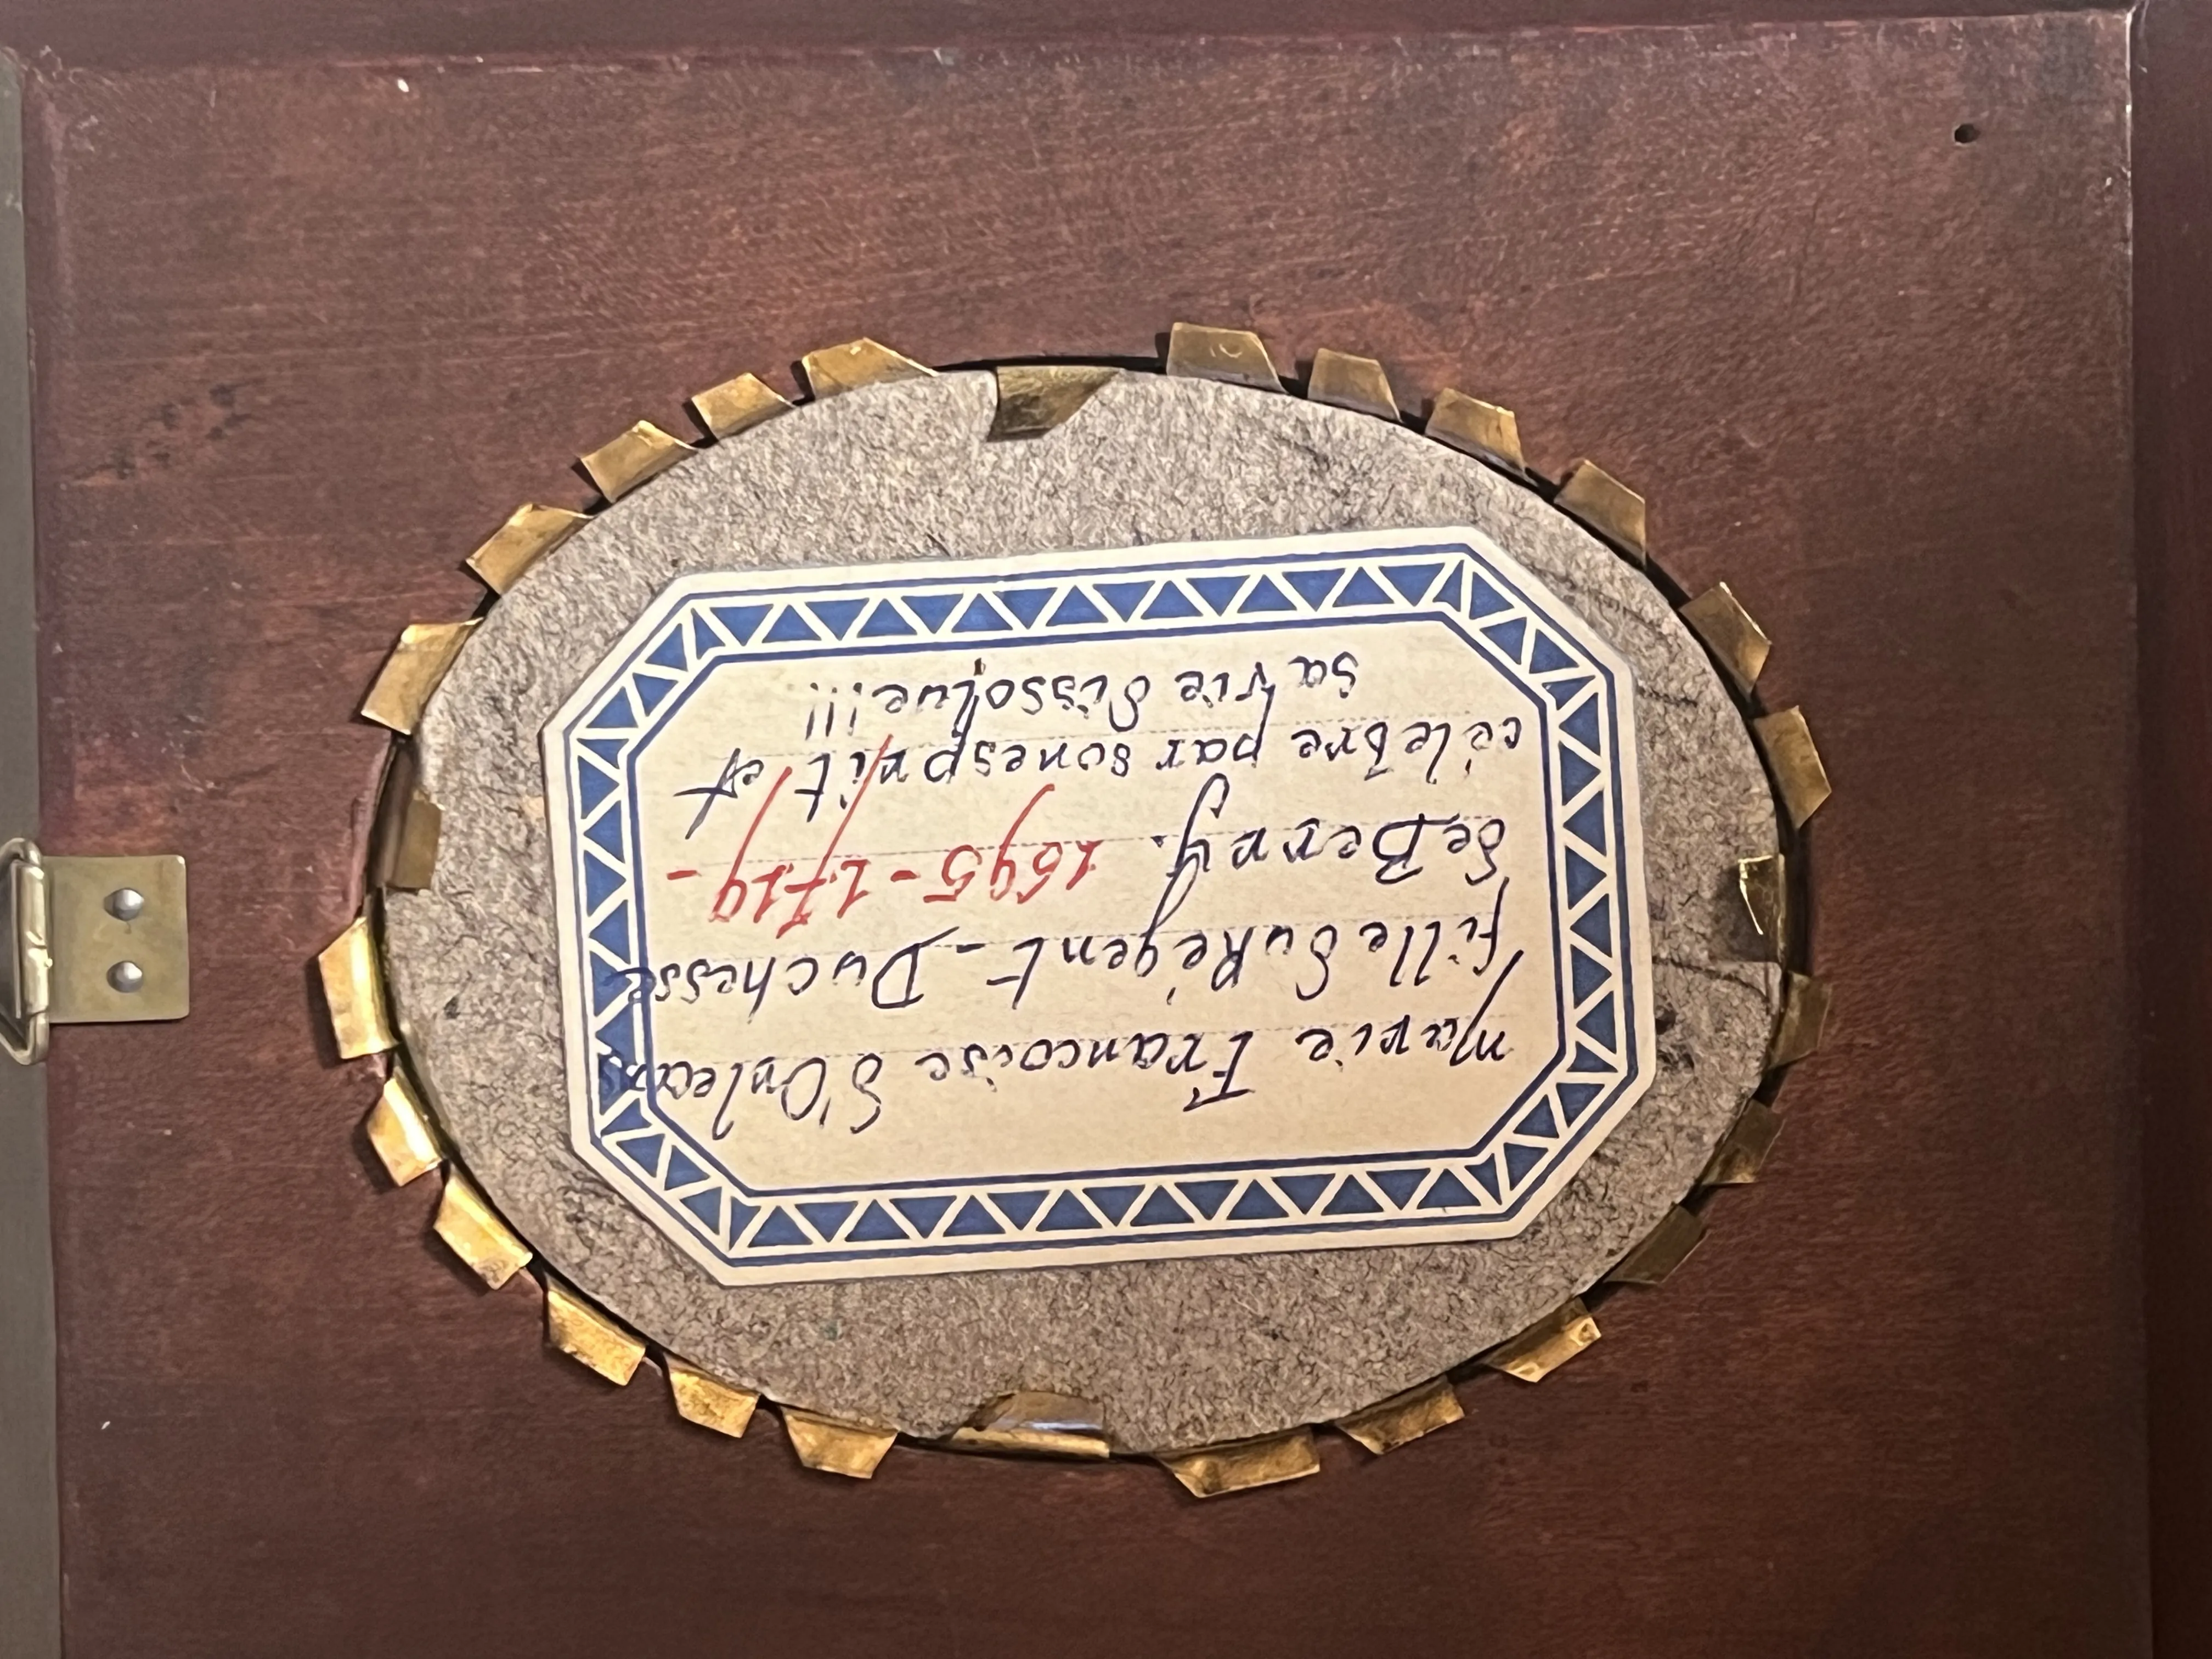 Marie Francoise d'Orleans
fille du Régent - Duchesse
de Berry. 1695-1719-
célebre par son esprit et
sa vie dissolue!!!